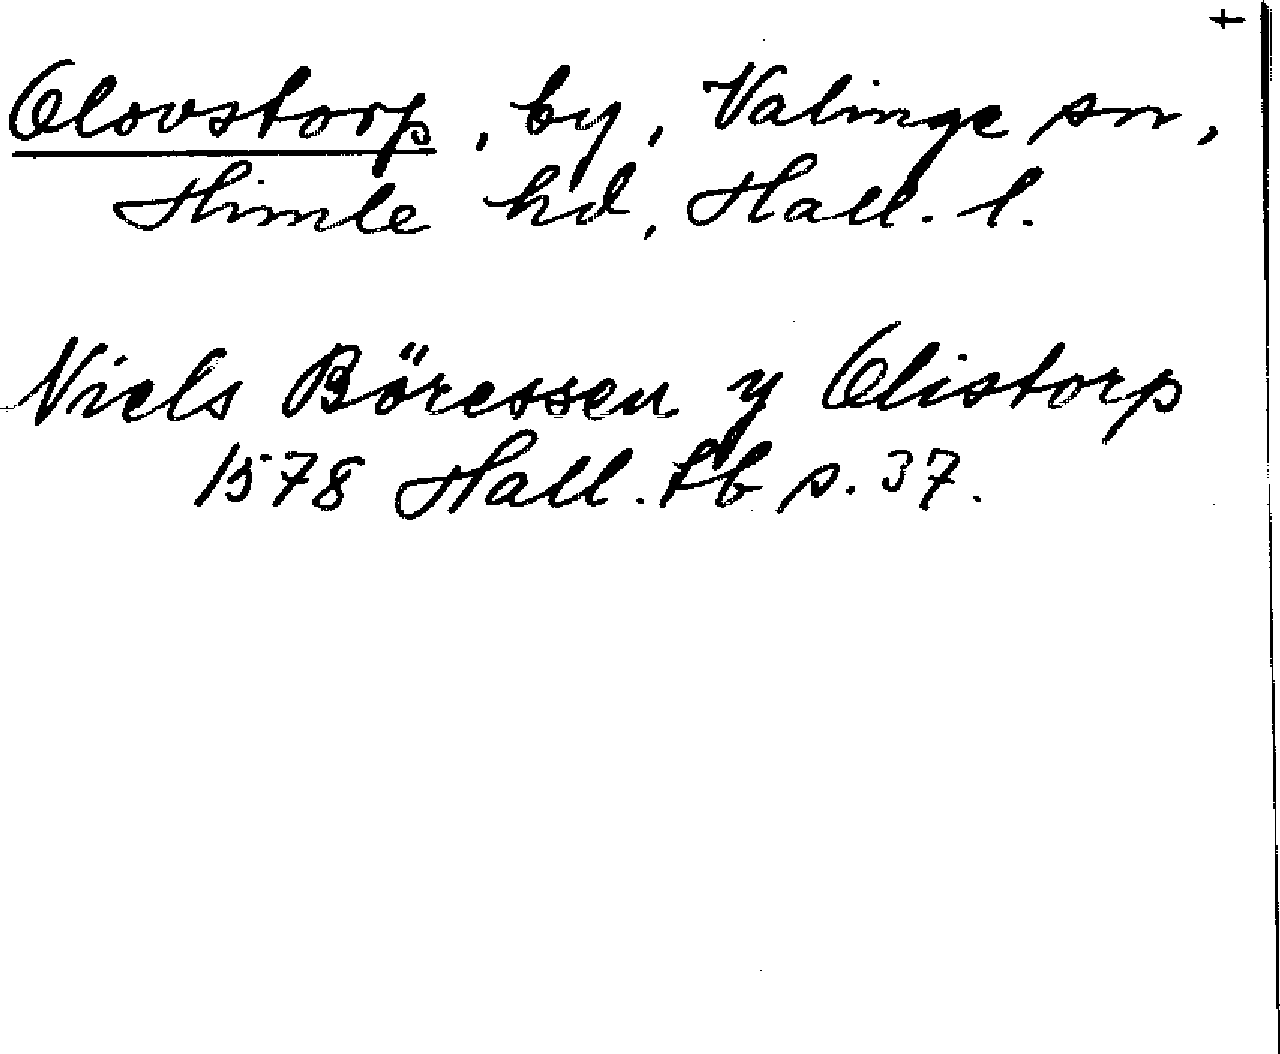 Olovstorp, by, Valinge sn,
Himle hd, Hall. l.
Niels Böressen y Olistorp
1578 Hall. tb s. 37.